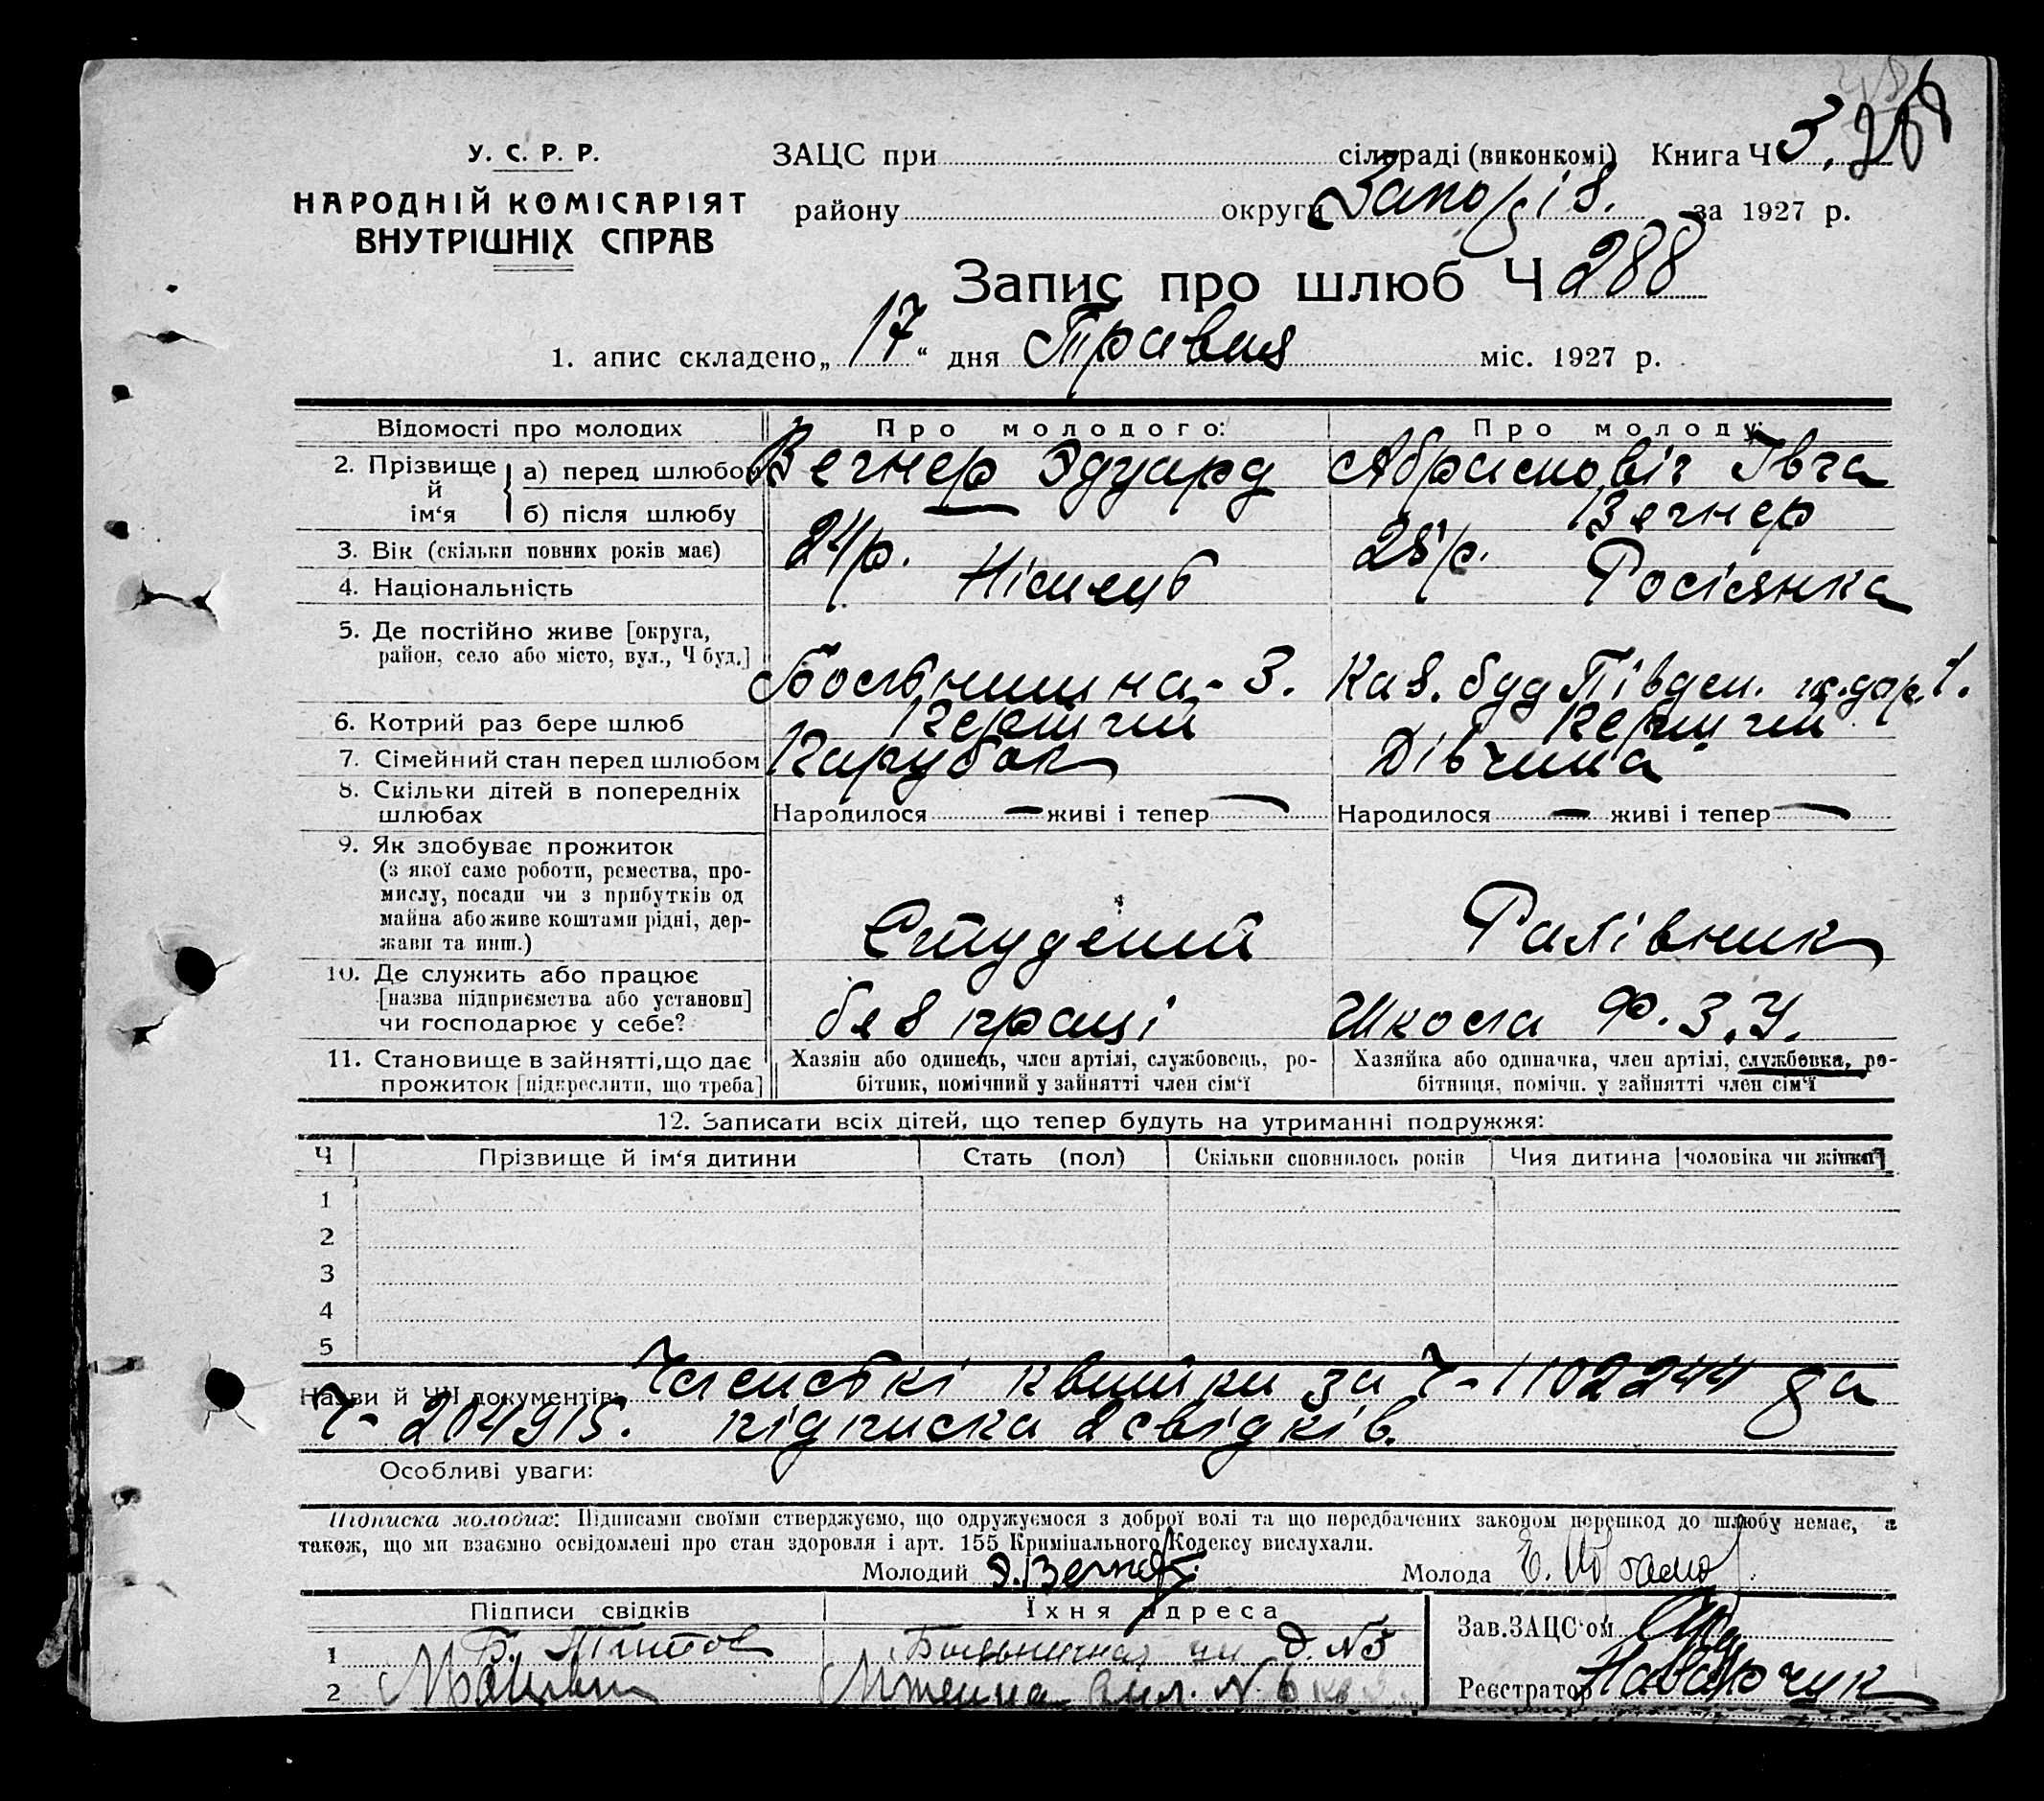 У. С. Р. Р.
НАРОДНІЙ КОМІСАРІЯТ
ВНУТРІШНІХ СПРАВ
ЗАЦС при сільраді (виконкомі) Книга Ч 3.
району округи Запоріз. за 1927 р.
Запис про шлюб Ч 288
1. апис складено „ 17 “ дня Травня міс. 1927 р.
Відомості про молодих Про молодого: Про молоду:
2. Прізвище й ім‘я а) перед шлюбом Вегнер Эдуард
б) після шлюбу Вегнер
3. Вік (скільки повних років має) 24 р. 25 р.
4. Національність Німець Росіянка
5. Де постійно живе [округа,
район, село або місто, вул., Ч буд.] Каз. буд Півден. ж.дор.
6. Котрий раз бере шлюб Перший Перший
7. Сімейний стан перед шлюбом Парубок Дівчина
8. Скільки дітей в попередніх
шлюбах Народилося — живі і тепер — Народилося — живі і тепер —
9. Як здобуває прожиток
(з якої саме роботи, ремества, про-
мислу, посади чи з прибутків од
майна або живе коштами рідні, дер-
жави та инш.) Студент
10. Де служить або працює
[назва підприємства або установи]
чи господарює у себе? без праці Школа Ф.З.У.
11. Становище в зайнятті, що дає
прожиток [підкреслити, що треба]
Хазяін або одинець, член артілі, службовець, ро-
бітник, помічний у зайнятті член сім‘ї
Хазяйка або одиначка, член артілі, службовка, ро-
бітниця, помічн. у зайнятті член сім‘ї
12. Записати всіх дітей, що тепер будуть на утриманні подружжя:
Ч Прізвище й ім‘я дитини Стать (пол) Скільки сповнилось років Чия дитина [чоловіка чи жінки]
1
2
3
4
5
Назви й ЧЧ документів: Членські квитки за Ч- 1102244 да
Ч- 204915. підписка 2 свідків.
Особливі уваги:
Підписка молодих: Підписами своїми стверджуємо, що одружуємося з доброї волі та що передбачених законом перешкод до шлюбу немає, а
також, що ми взаємно освідомлені про стан здоровля і арт. 155 Кримінального Кодексу вислухали.
Молодий Э. Вегнер. Молода
Підписи свідків Їхня адреса
1 д. N 5
2
Зав. ЗАЦС‘ом
Реєстратор